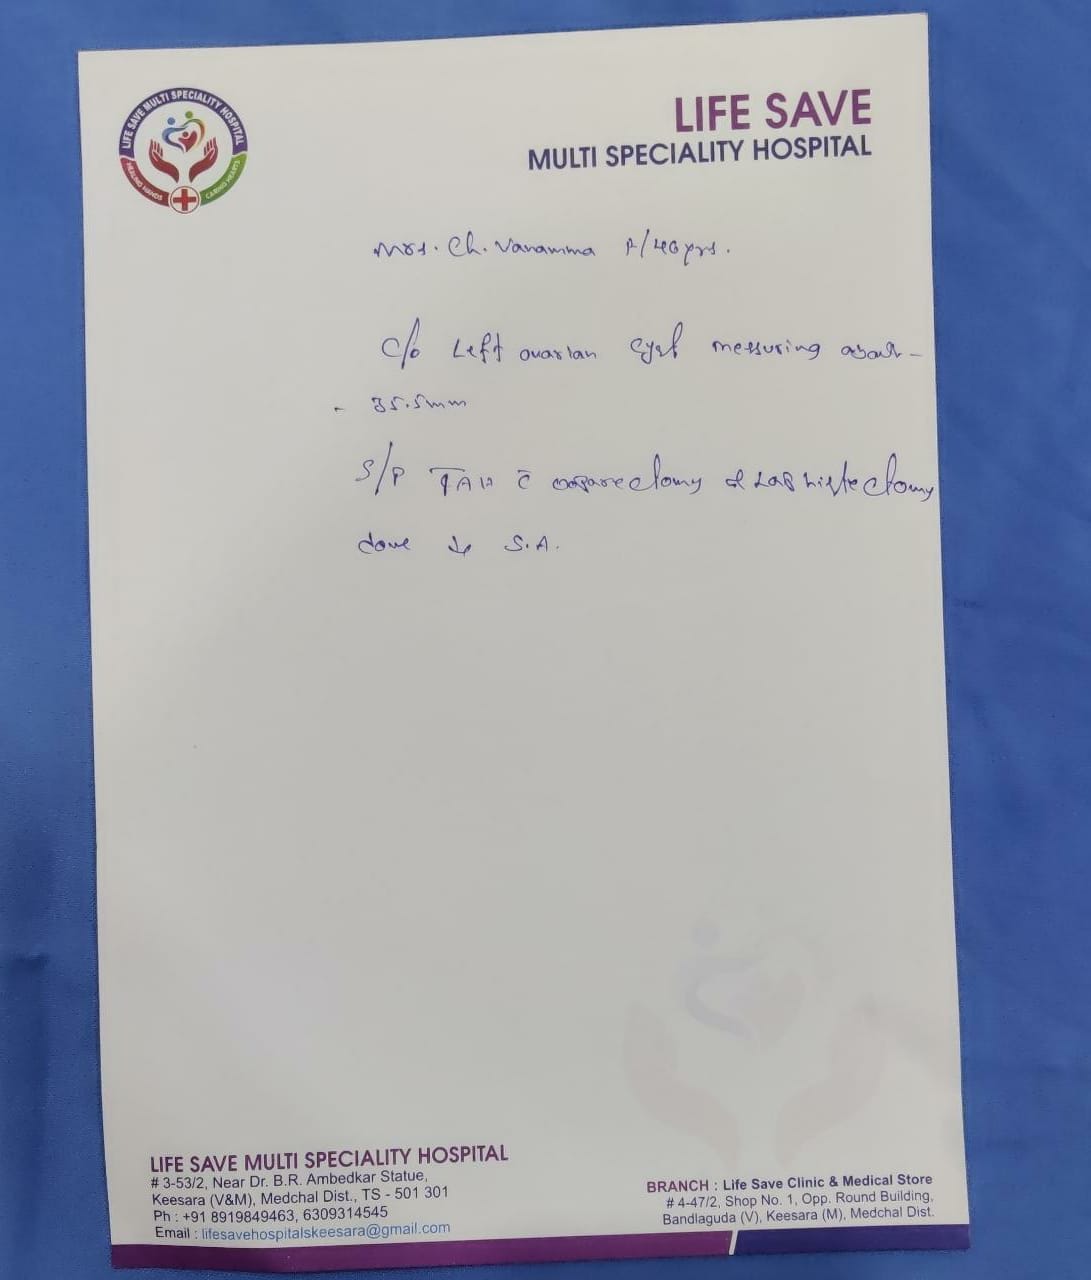 LIFE SAVE MULTI SPECIALITY HOSPITAL
HEALING HANDS
CARING HEARTS
LIFE SAVE
MULTI SPECIALITY HOSPITAL
Mrs. Ch. Vanamma F/40yrs.
C/o Left ovarian cyst messuring about -
- 35.5mm
S/P TAH c̄ &
done S.A.
LIFE SAVE MULTI SPECIALITY HOSPITAL
# 3-53/2, Near Dr. B.R. Ambedkar Statue,
Keesara (V&M), Medchal Dist., TS - 501 301
Ph : +91 8919849463, 6309314545
Email : lifesavehospitalskeesara@gmail.com
BRANCH : Life Save Clinic & Medical Store
# 4-47/2, Shop No. 1, Opp. Round Building,
Bandlaguda (V), Keesara (M), Medchal Dist.